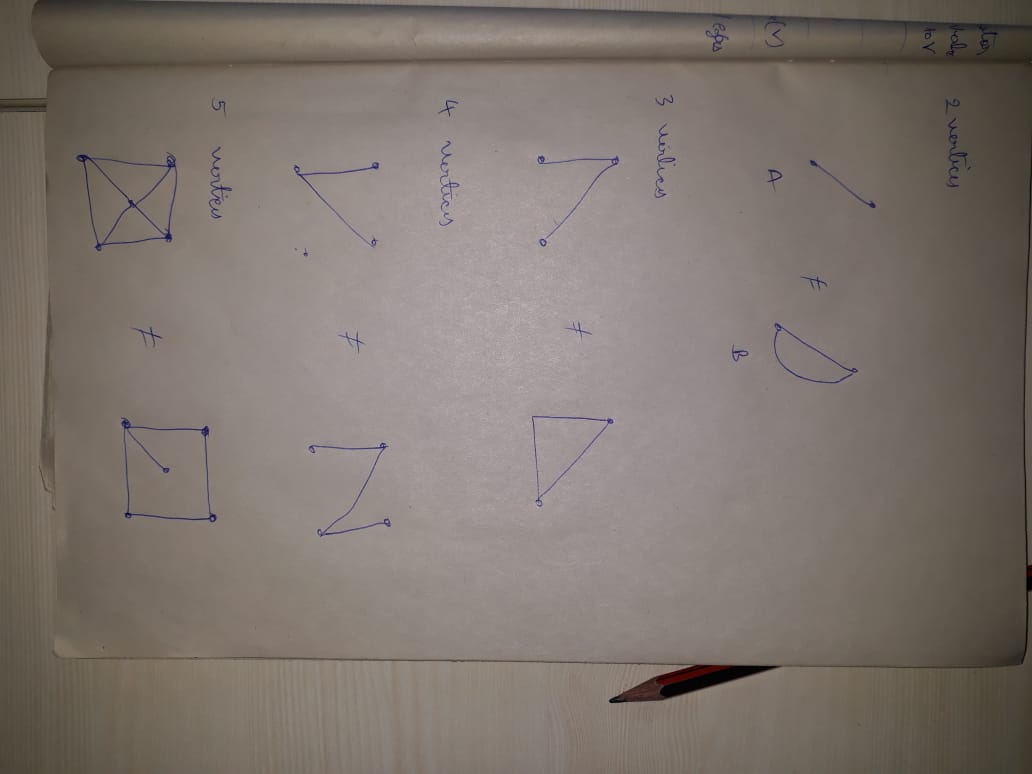 2 vertices
A ≠ B
3 vertices
≠
4 vertices
≠
5 vertices
≠